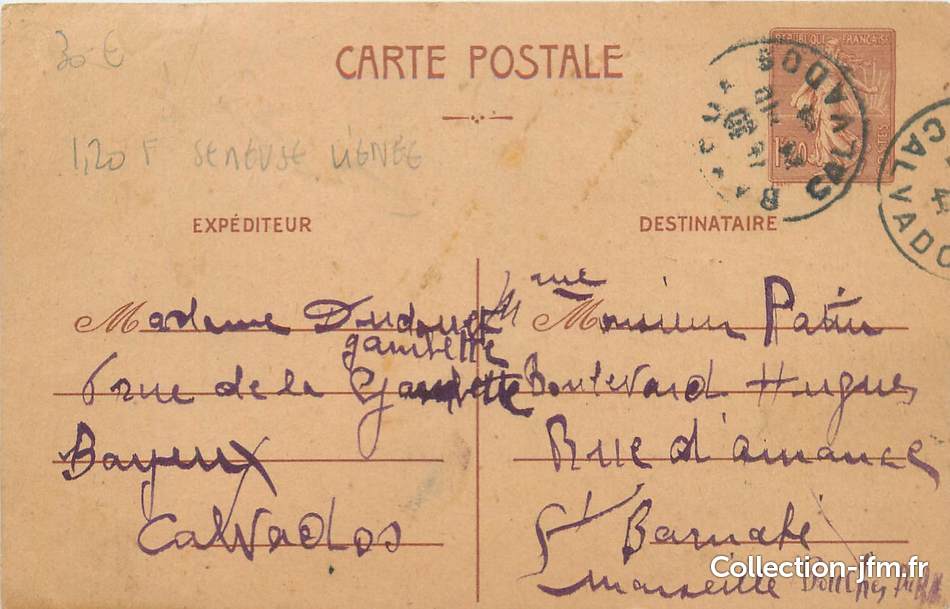 30 €
CARTE POSTALE
REPUBLIQUE FRANÇAISE
POSTES
CALVADOS
CALVADO
1,20 F SEMEUSE LIGNÉE
EXPÉDITEUR
DESTINATAIRE
Madame
gambette
rue de la
Bayeux
Calvados
Mme Monsieur Patin
Boulevard Hugues
Rue d'amance
St Barnabé
Marseille
Collection-jfm.fr